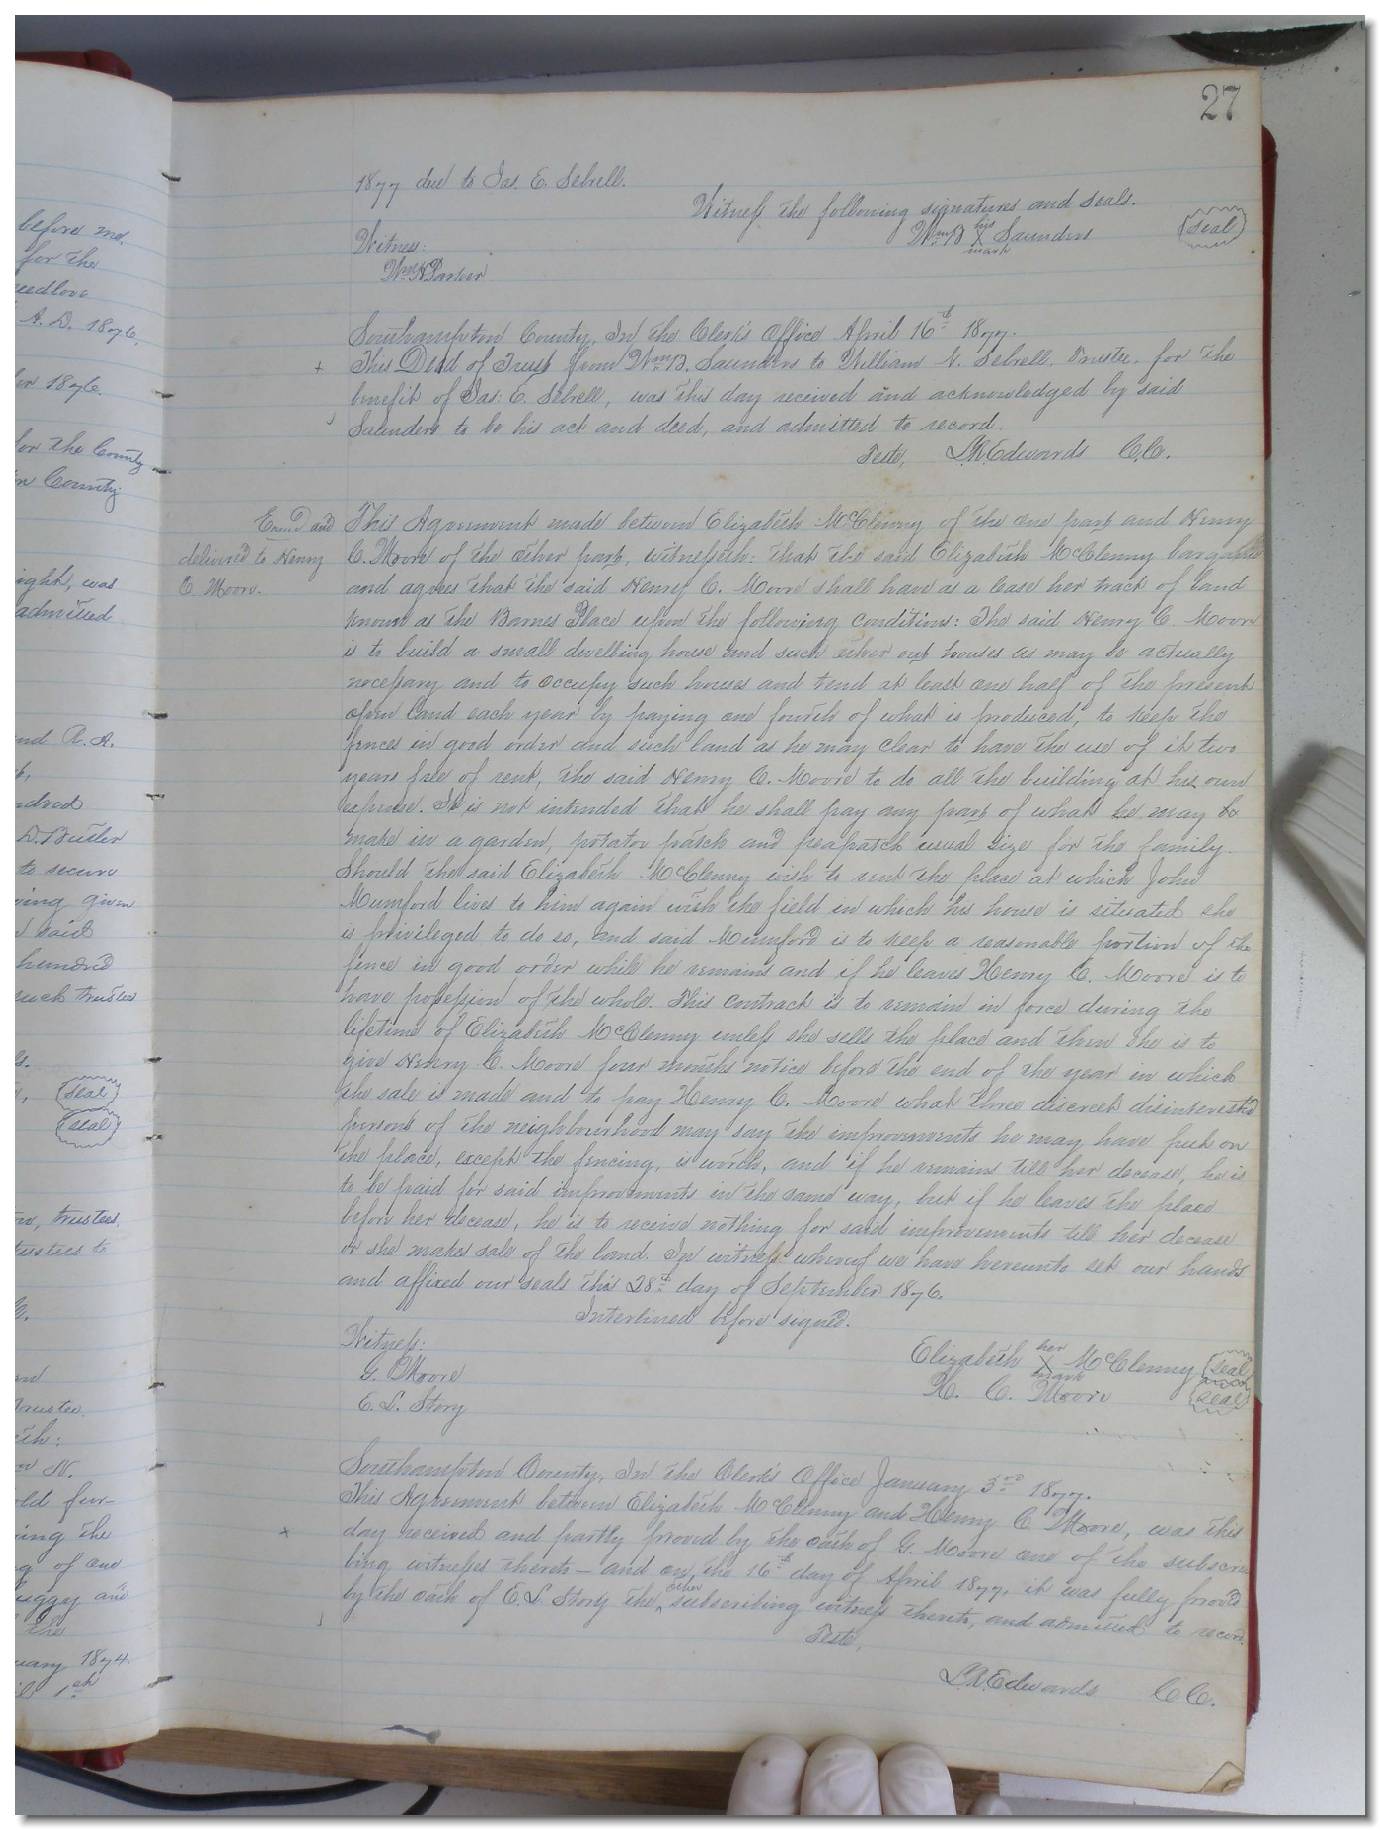 27
before me.
for the
eedlove
A. D. 1876.
1876.
for the County
n County
ight, was
admitted
nd R. A.
ndred
D. Butler
to secure
ving given
d said
hundred
such trustees
(seal)
(seal)
trustees.
trustees to
Trustee
th:
N.
old fur-
ing the
g of one
uggy and
the
uary 1874
1st
1877 due to Jas. E. Sebrell.
Witness the following signatures and seals.
Wm B his X mark Saunders (seal)
Witness:
Wm H Parker
Southampton County, In the Clerk's Office April 16th 1877.
+ This Deed of Trust from Wm B. Saunders to William N. Sebrell, Trustee, for the
benefit of Jas. E. Sebrell, was this day received and acknowledged by said
Saunders to be his act and deed, and admitted to record.
Teste, L. R. Edwards C.C.
Exmd and
delivered to Henry
C. Moore.
This Agreement made between Elizabeth McClenny of the one part and Henry
C. Moore of the other part, witnesseth: that the said Elizabeth McClenny bargains
and agrees that the said Henry C. Moore shall have as a lease her tract of land
known as the Barnes Place upon the following conditions: The said Henry C. Moore
is to build a small dwelling house and such other out houses as may be actually
necessary and to occupy such houses and tend at least one half of the present
open land each year by paying one fourth of what is produced, to keep the
fences in good order and such land as he may clear to have the use of it two
years free of rent, the said Henry C. Moore to do all the building at his own
expense. It is not intended that he shall pay any part of what he may
make in a garden, potatoe patch and peapatch usual size for the family.
Should the said Elizabeth McClenny wish to rent the place at which John
Mumford lives to him again with the field in which his house is situated she
is privileged to do so, and said Mumford is to keep a reasonable portion of the
fence in good order while he remains and if he leaves Henry C. Moore is to
have possession of the whole. This contract is to remain in force during the
lifetime of Elizabeth McClenny unless she sells the place and then she is to
give Henry C. Moore four months notice before the end of the year in which
the sale is made and to pay Henry C. Moore what three discreet disinterested
persons of the neighbourhood may say the improvements he may have put on
the place, except the fencing, is worth, and if he remains till her decease, he is
to be paid for said improvements in the same way, but if he leaves the place
before her decease, he is to receive nothing for said improvements till her decease
or she makes sale of the land. In witness whereof we have hereunto set our hands
and affixed our seals this 28th day of September 1876.
Interlined before signed.
Witness:
G. Moore
E. L. Story
Elizabeth her X mark McClenny (seal)
H. C. Moore (seal)
Southampton County, In the Clerk's Office January 3rd 1877.
This Agreement between Elizabeth McClenny and Henry C. Moore, was this
x day received and partly proved by the oath of G. Moore one of the subscri
bing witnesses thereto – and on the 16th day of April 1877, it was fully proved
by the oath of E. L. Story the other subscribing witness thereto, and admitted to record.
Teste,
L. R. Edwards C C.